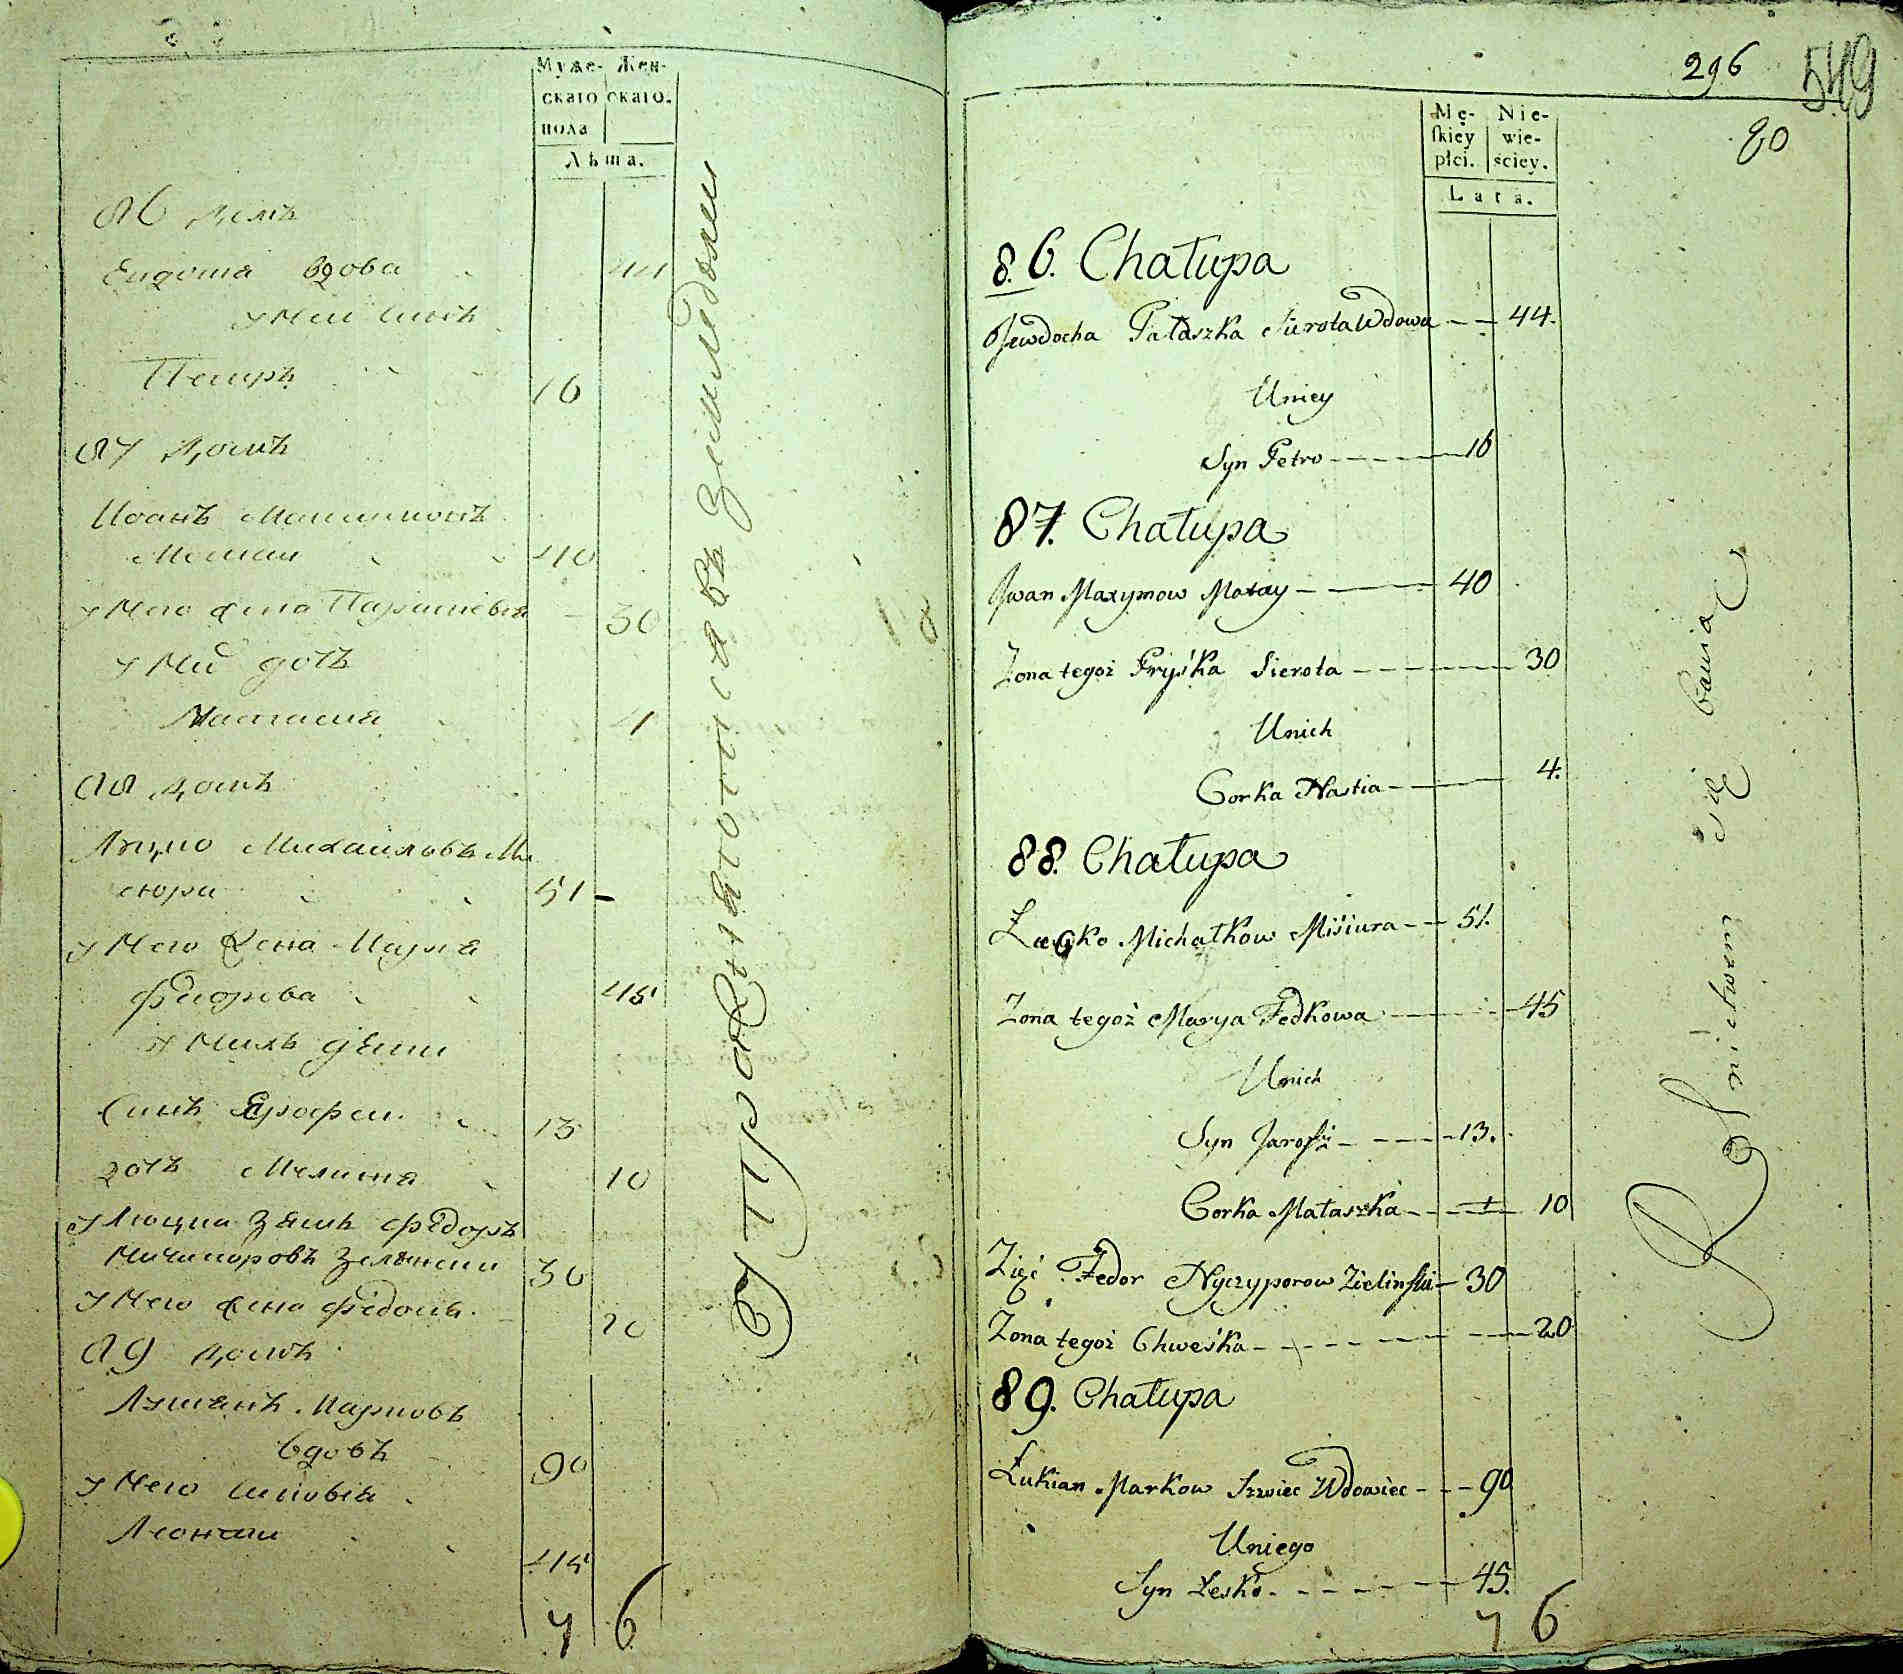 Муже- Жен-
скаго скаго.
пола
Лѣта.
86 домъ
Евдокія вдова 44
у Неи сынъ
Петръ 16
87 домъ
Иоанъ Максимовъ
40
у Него жена Парасковья 30
у Них дочь
Настасия 4
88 домъ
Михаиловъ Ми
сюра 51
у Него Жена Марія
Федорова 45
у Нихъ дѣти
Сынъ Ерофеи 13
дочь 10
у зять Федоръ
Ничипоровъ Зелински 30
у Него жена Федосья 20
89 домъ
Лукьянъ Марковъ
вдовъ 90
у Него сыновья
45
7 6
въ Земледѣлии
296
549
80
Mę- Nie-
skiey wie-
płci. ściey.
Lata.
86. Chałupa
Jewdocha Pałaszka Sierota Wdowa 44.
Uniey
Syn Petro 16
87. Chałupa
Jwan Maxymow 40
Żona tegoż Pryśka Sierota 30
Unich
Corka Nastia 4.
88. Chałupa
Łucko Michałkow Misiura 51.
Żona tegoż Marya Fedkowa 45
Unich
Syn Jarofij 13.
Corka Małaszka 10
Zięć Fedor Nyczyporow Zielinski 30
Żona tegoż Chweśka 20
89. Chałupa
Łukian Markow Szwiec Wdowiec 90
Uniego
Syn Łeśko 45.
7 6
Rolnictwem się bawią